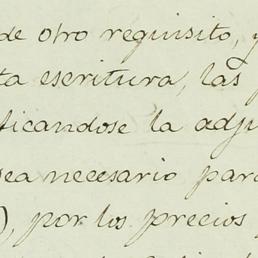 de otro requisito, y
ta escritura, las
ficandose la adju
sea necesario para
), por los precios